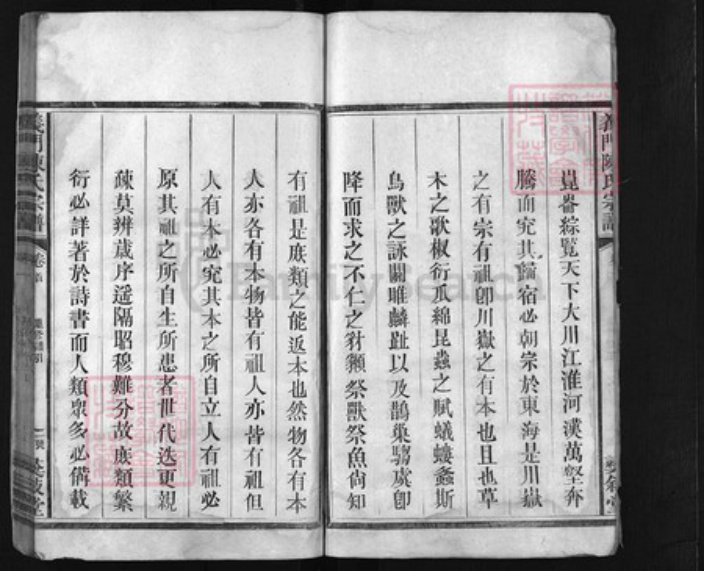 義門陳氏宗譜
崑崙綜覧天下大川江淮河漢萬壑奔
騰而究其歸宿必朝宗於東海是川嶽
之有宗有祖卽川嶽之有本也且也草
木之歌椒衍瓜綿昆蟲之賦蟻螻螽斯
鳥獸之詠關雎麟趾以及鵲巢騶虞卽
降而求之不仁之豺獺祭獸祭魚尙知
有祖是庶類之能返本也然物各有本
人亦各有本物皆有祖人亦皆有祖但
人有本必究其本之所自立人有祖必
原其祖之所自生所患者世代迭更親
疎莫辨歳序遥隔昭穆難分故庶類繁
衍必詳著於詩書而人類衆多必備載
義門陳氏宗譜
卷首
FamilySearch